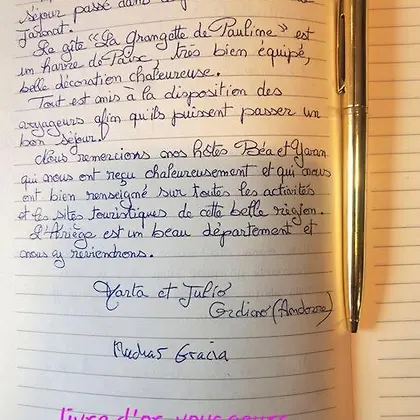 séjour passé dans
La gîte « La Grangette de Pauline » est
un havre de Paix, très bien équipé,
belle décoration chaleureuse.
Tout est mis à la disposition des
voyageurs afin qu'ils puissent passer un
bon séjour.
Nous remercions nos hôtes Béa et Yavan
qui nous ont reçu chaleureusement et qui nous
ont bien renseigné sur toutes les activités
et les sites touristiques de cette belle région.
L'Ariège est un beau département et
nous y reviendrons.
Marta et Julio
Ordino (Andorre)
Muchas Gracia
livre d'or voyageurs